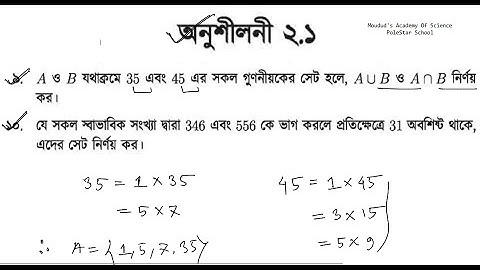 Moudud's Academy Of Science
PoleStar School
অনুশীলনী ২.১
৯. A ও B যথাক্রমে 35 এবং 45 এর সকল গুণনীয়কের সেট হলে, A ∪ B ও A ∩ B নির্ণয়
কর।
১০. যে সকল স্বাভাবিক সংখ্যা দ্বারা 346 এবং 556 কে ভাগ করলে প্রতিক্ষেত্রে 31 অবশিষ্ট থাকে,
এদের সেট নির্ণয় কর।
35 = 1 × 35
= 5 × 7
∴ A = {1, 5, 7, 35}
45 = 1 × 45
= 3 × 15
= 5 × 9